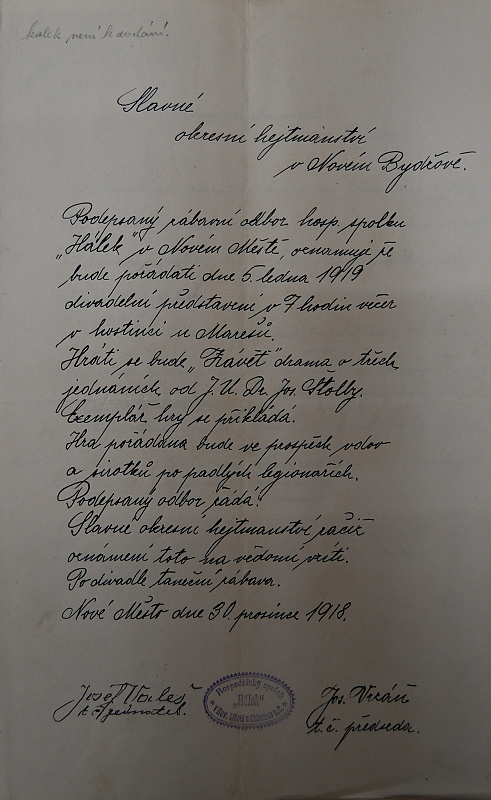 kolek není k dostání.
Slavné
okresní hejtmanství
v Novém Bydžově.
Podepsaný zábavní odbor hosp. spolku
„Hálek" v Novém Městě, oznamuje že
bude pořádati dne 5. ledna 1919
divadelní představení v 7 hodin večer
v hostinci u Marešů.
Hráti se bude „Závěť" drama o třech
jednáních od J. U. Dr. Jos. Štolby.
Exemplář hry se přikládá.
Hra pořádána bude ve prospěch vdov
a sirotků po padlých legionářích.
Podepsaný odbor žádá:
Slavné okresní hejtmanství račiž
oznámení toto na vědomí vzíti.
Po divadle taneční zábava.
Nové Město dne 30. prosince 1918.
Josef
t. č. jednatel.
Hospodářský spolek
„Hálek"
Jos.
t. č. předseda.